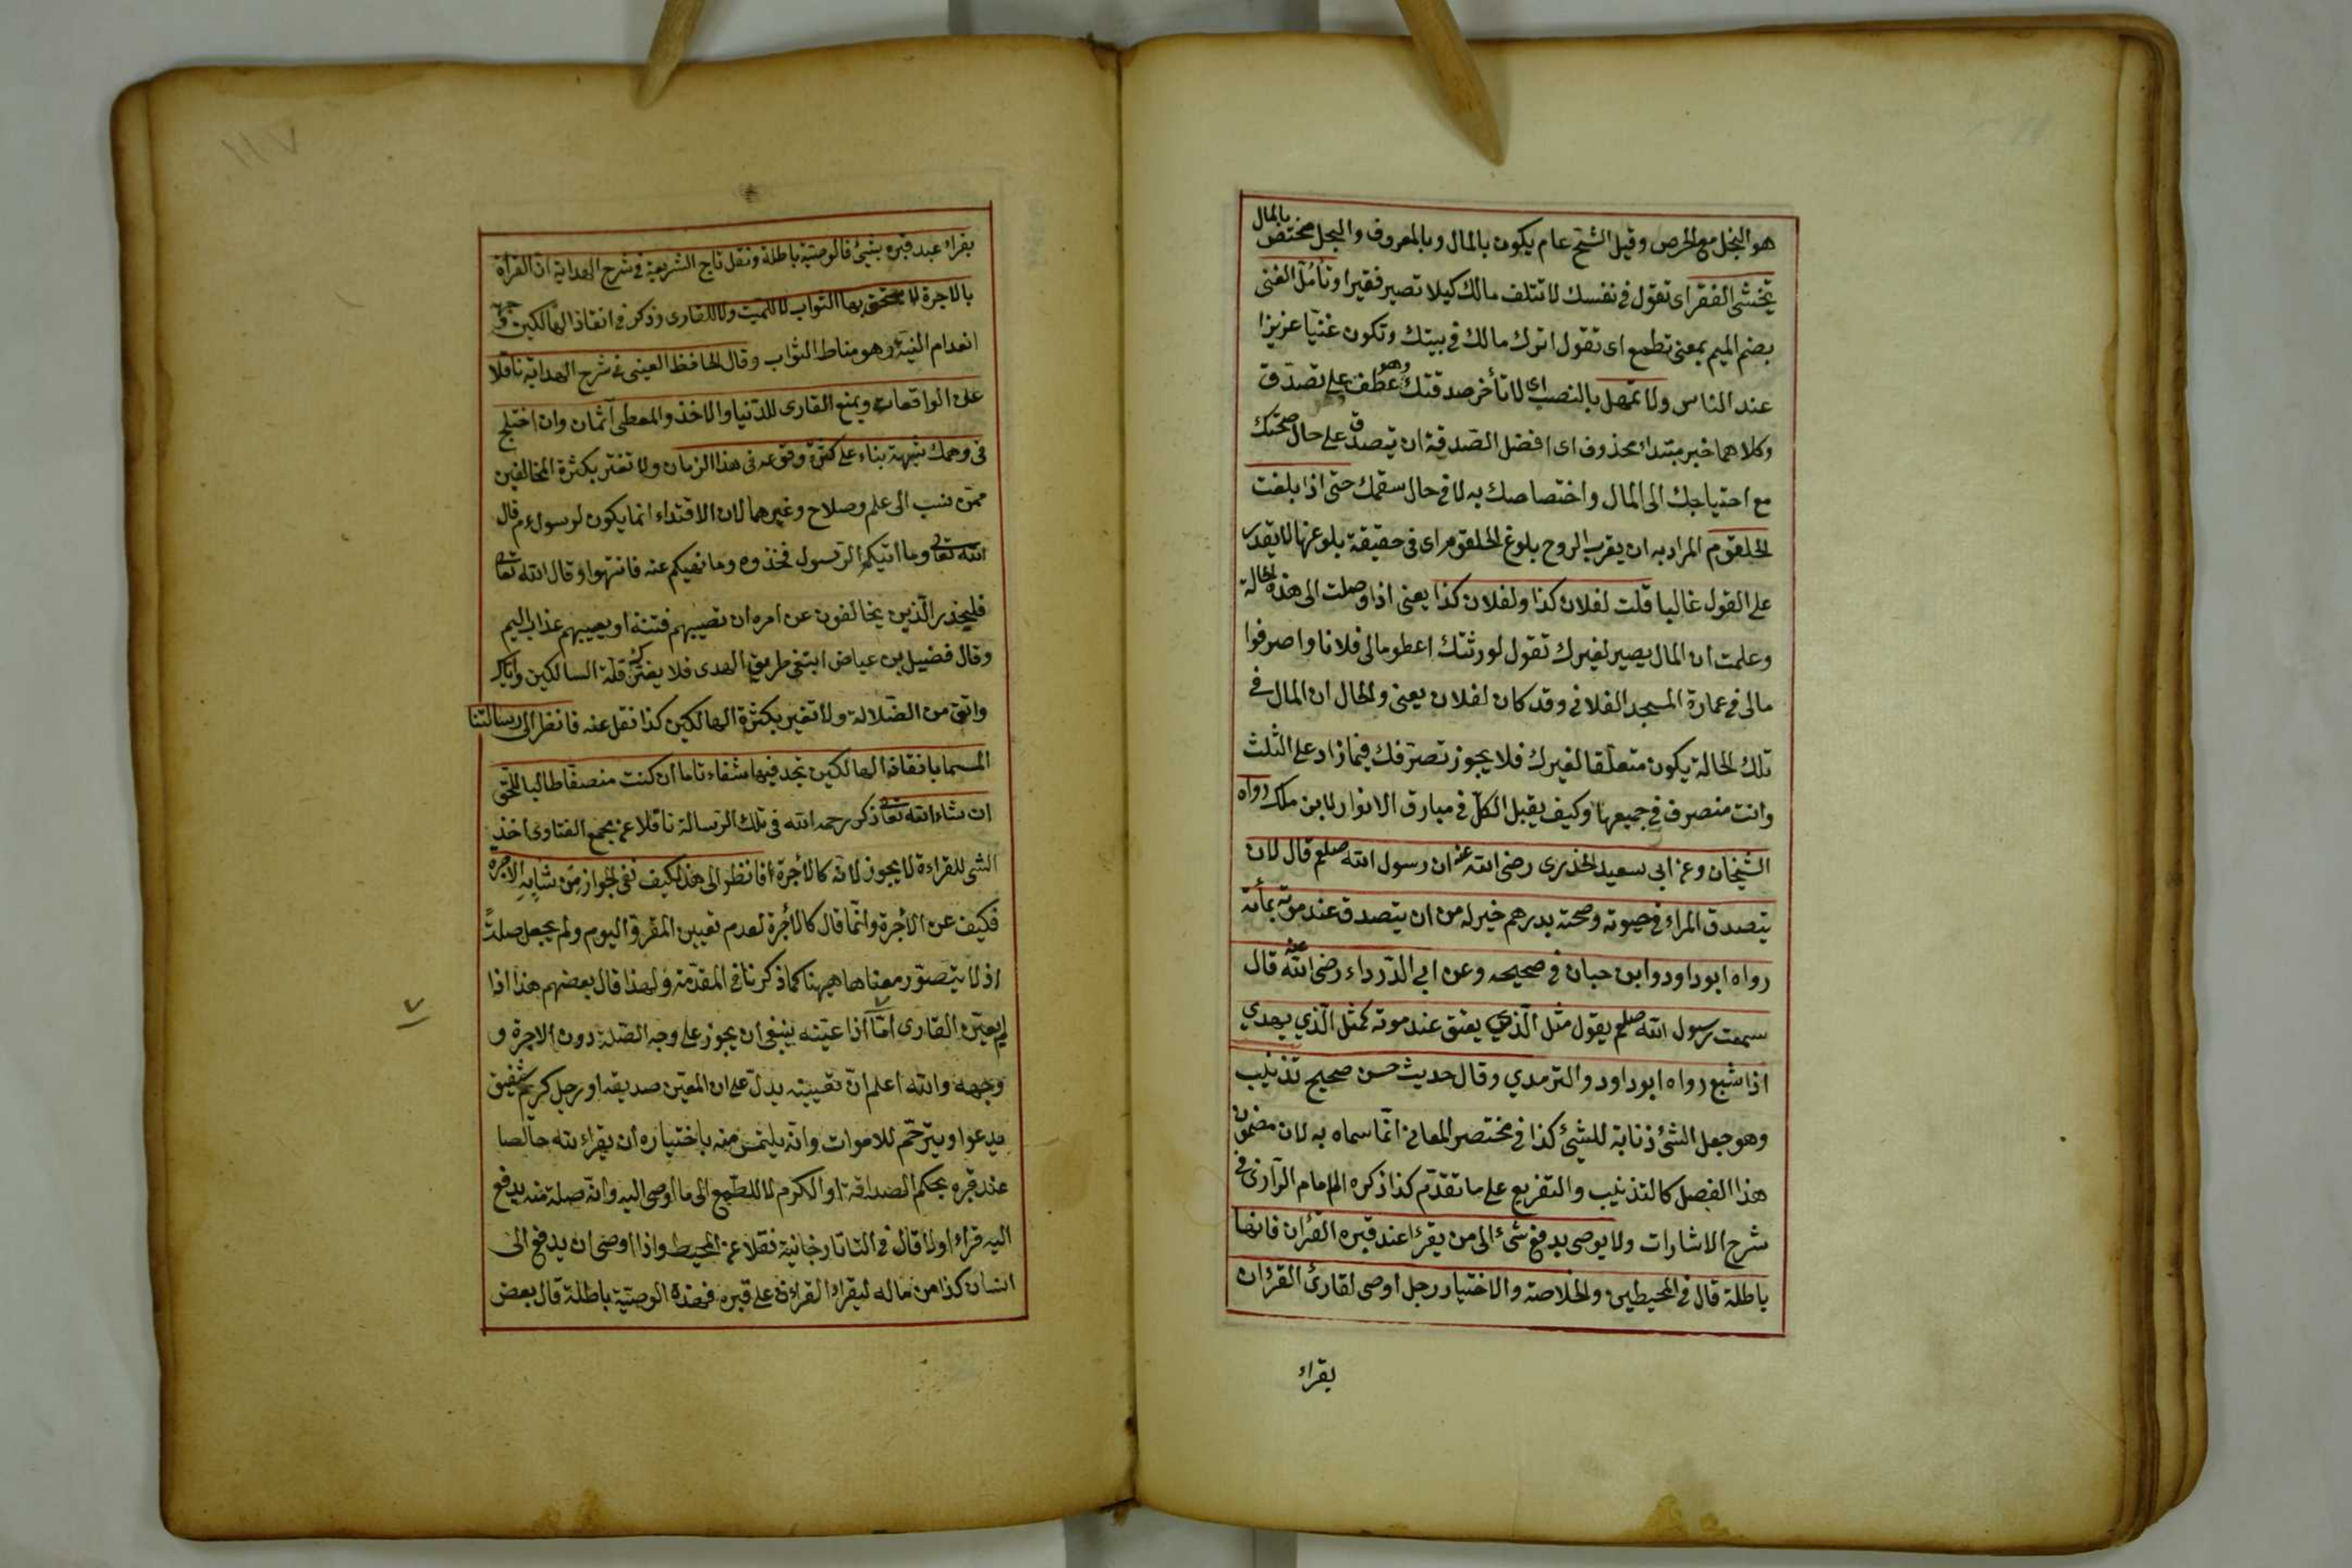 هو البخل مع الحرص وقيل الشح عام يكون بالمال وبالمعروف والبخل مختص بالمال
تخشى الفقر اى تقول فى نفسك لا تتلف مالك كيلا تصير فقيرا وتأمل الغنى
بضم الميم بمعنى تطمع اى تقول اترك مالك فى بيتك وتكون غنيا عزيزا
عند الناس ولا تمهل بالنصب اى لا تأخر صدقتك وهو عطف على تصدق
وكلاهما خبر مبتداء محذوف اى افضل الصدقة ان تتصدق على حال صحتك
مع احتياجك الى المال واختصاصك به لا فى حال سقمك حتى اذا بلغت
الحلقوم المراد به ان يقرب الروح بلوغ الحلقوم اى فى حقيقة بلوغها لا يقدر
على القول غالبا قلت لفلان كذا ولفلان كذا يعنى اذا وصلت الى هذه الحالة
وعلمت ان المال يصير لغيرك تقول لورثتك اعطو مالى فلانا واصرفوا
مالى فى عمارة المسجد الفلانى وقد كان لفلان يعنى والحال ان المال فى
تلك الحالة يكون متعلقا لغيرك فلا يجوز تصرفك فيما زاد على الثلث
وانت منصرف فى جميعها وكيف يقبل الكل فى مبارق الانوار لابن ملك رواه
الشيخان وعن ابى سعيد الخذرى رضى الله عنه ان رسول الله صلعم قال لان
يتصدق المراء فى حيوته وصحته بدرهم خير له من ان يتصدق عند موته بمأنة
رواه ابو داود وابن حبان فى صحيحه وعن ابي الدرداء رضى الله عنه قال
سمعت رسول الله صلعم يقول مثل الذي يعتق عند موته كمثل الذي يهدي
اذا شبع رواه ابو داود والترمدي وقال حديث حسن صحيح تذنيب
وهو جعل الشئ ذنابة للشيئ كذا فى مختصر المعانى انما سماه به لان مضمون
هذا الفصل كالتذنيب والتفريع على ما تقدم كذا ذكره الامام الرازى فى
شرح الاشارات ولا يوصى بدفع شئ الى من يقرا عند قبره القران فانها
باطلة قال فى المحيطين والخلاصة والاختيار رجل اوصى لقارئ القران
يقراء
١١٧
يقراء عند قبره بشئ فالوصية باطلة ونقل تاج الشريعة فى شرح الهداية ان القرأة
بالاجرة لا يستحق بها الثواب لا للميت ولا للقارى وذكر فى انقاذ الهالكين
انعدام النية وهو مناط الثواب وقال الحافظ العينى فى شرح الهداية ناقلا
على الواقعات ويمنع القارى للدنيا والاخذ والمعطى آثمان وان اختلج
فى وهمك شبهة بناء على كثرة وقوعه فى هذا الزمان ولا تغتر بكثرة المخالفين
ممن نسب الى علم وصلاح وغيرهما لان الاقتداء انما يكون لرسول عم قال
الله تعالى وما اتيكم الرسول فخذوه وما نهيكم عنه فانتهوا وقال الله تعالى
فليحذر الذين يخالفون عن امره ان تصيبهم فتنة او يصيبهم عذاب اليم
وقال فضيل بن عياض ابتغى طريق الهدى فلا يغترنك قلة السالكين واياك
واتق من الضلالة ولا تغير بكثرة الهالكين كذا نقل عنه فانظر الى رسالتنا
المسما بانقاذ الهالكين تجد فيها شفاء تاما ان كنت منصفا طالبا للحق
ان شاء الله تعالى ذكر رحمه الله فى تلك الرسالة ناقلا عن مجمع الفتاوى اخذ
الشئ للقراءة لا يجوز لانه كالأجرة فانظر الى هذا كيف نفى الجواز من شابه الاجرة
فكيف عن الأجرة وانما قال كالأجرة لعدم تعيين المقرؤ اليوم ولم يجعل صلة
اذ لا يتصور معناها هيهنا كما ذكرنا فى المقدمة ولهذا قال بعضهم هذا اذا
لم يعين القارى اما اذا عينه ينبغى ان يجوز على وجه الصلة دون الاجرة و
وجهه والله اعلم ان تعيينه يدل على ان المعين صديقه او رجل كريم شفيق
يدعوا ويترحم للاموات وانه يلتمس منه باختياره ان يقراء لله خالصا
عند قبره بحكم الصداقة او الكرم لا للطمع الى ما اوصى اليه وانه صلة منه يدفع
اليه قراء اولا قال فى التاتارخانية نقلا عن المحيط واذا اوصى ان يدفع الى
انسان كذا من ماله ليقراء القران على قبره فهذه الوصية باطلة قال بعض